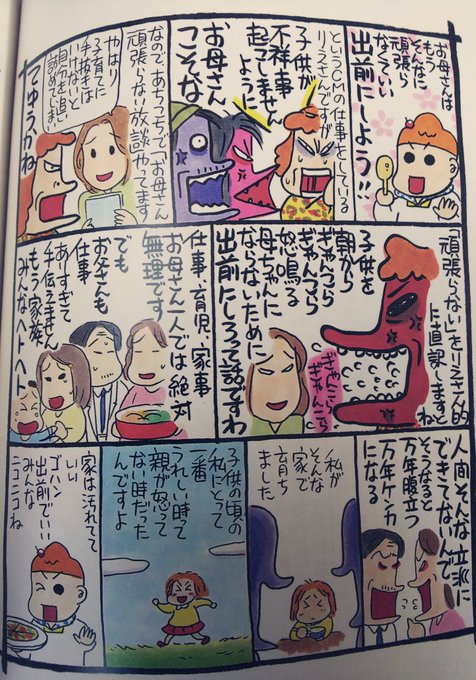 お母さんは
もう
そんなに
頑張ら
なくていい
出前にしよう!!
というCMの仕事をしている
りえさんですが
子供が
不祥事
起こしません
ように
お母さん
こそな
なので、あちこちで「お母さん
頑張らない放談やってます
やはり
子育てに
手抜きは
いけないと
自分を追い
詰めてしまい
てゆうかね
「頑張らない」をりえさん的
に直訳しますとね
子供を
朝から
ぎゃんこら
ぎゃんこら
怒鳴る
母ちゃんに
ならないために
出前にしろって話ですわ
ぎゃんこら
ぎゃんころ
仕事・育児・家事
お母さん一人では絶対
無理です
でも
お父さんも
仕事
ありすぎて
手伝えません
もう家族
みんなヘトヘト
人間そんな立派に
できてないんで
そうなると
万年腹立つ
万年ケンカ
になる
私が
そんな
家で
育ち
ました
子供の頃の
私にとって
一番
うれしい時って
親が怒って
ない時だった
んですよ
家は汚れてて
いい
ゴハン
出前でいい
みんな
ニコニコね